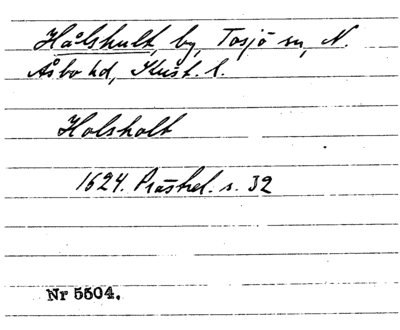 Hålshult, by, Tosjö sn, N.
Åsbo hd, Krist. l.
Holsholt
1624. Prästrel. s. 32
Nr 5504.